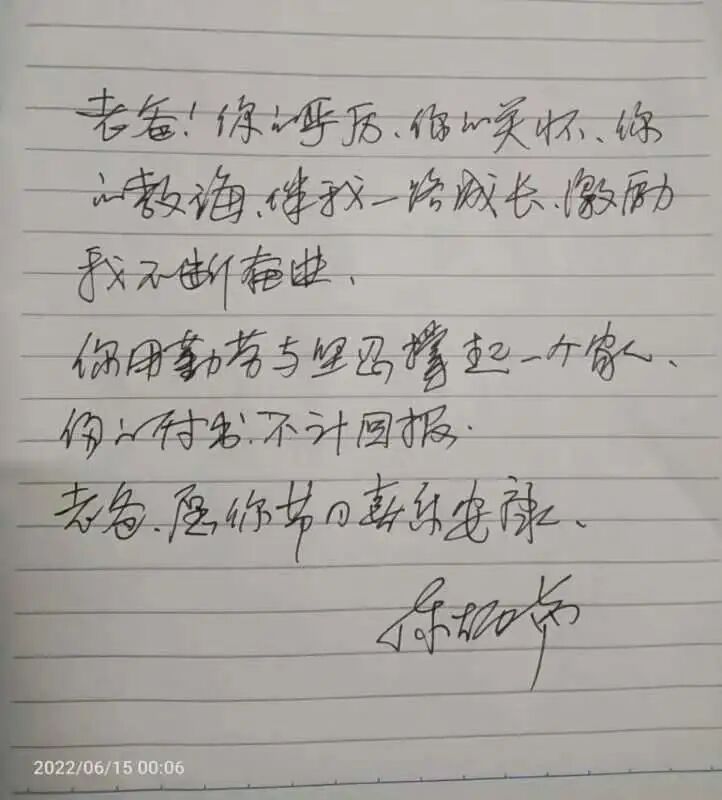 老爸！你的严厉、你的关怀、你
的教诲、伴我一路成长、激励
我不断奋进、
你用勤劳与坚忍撑起一个家、
你的付出、不计回报.
老爸、愿你节日喜乐安康、
2022/06/15 00:06